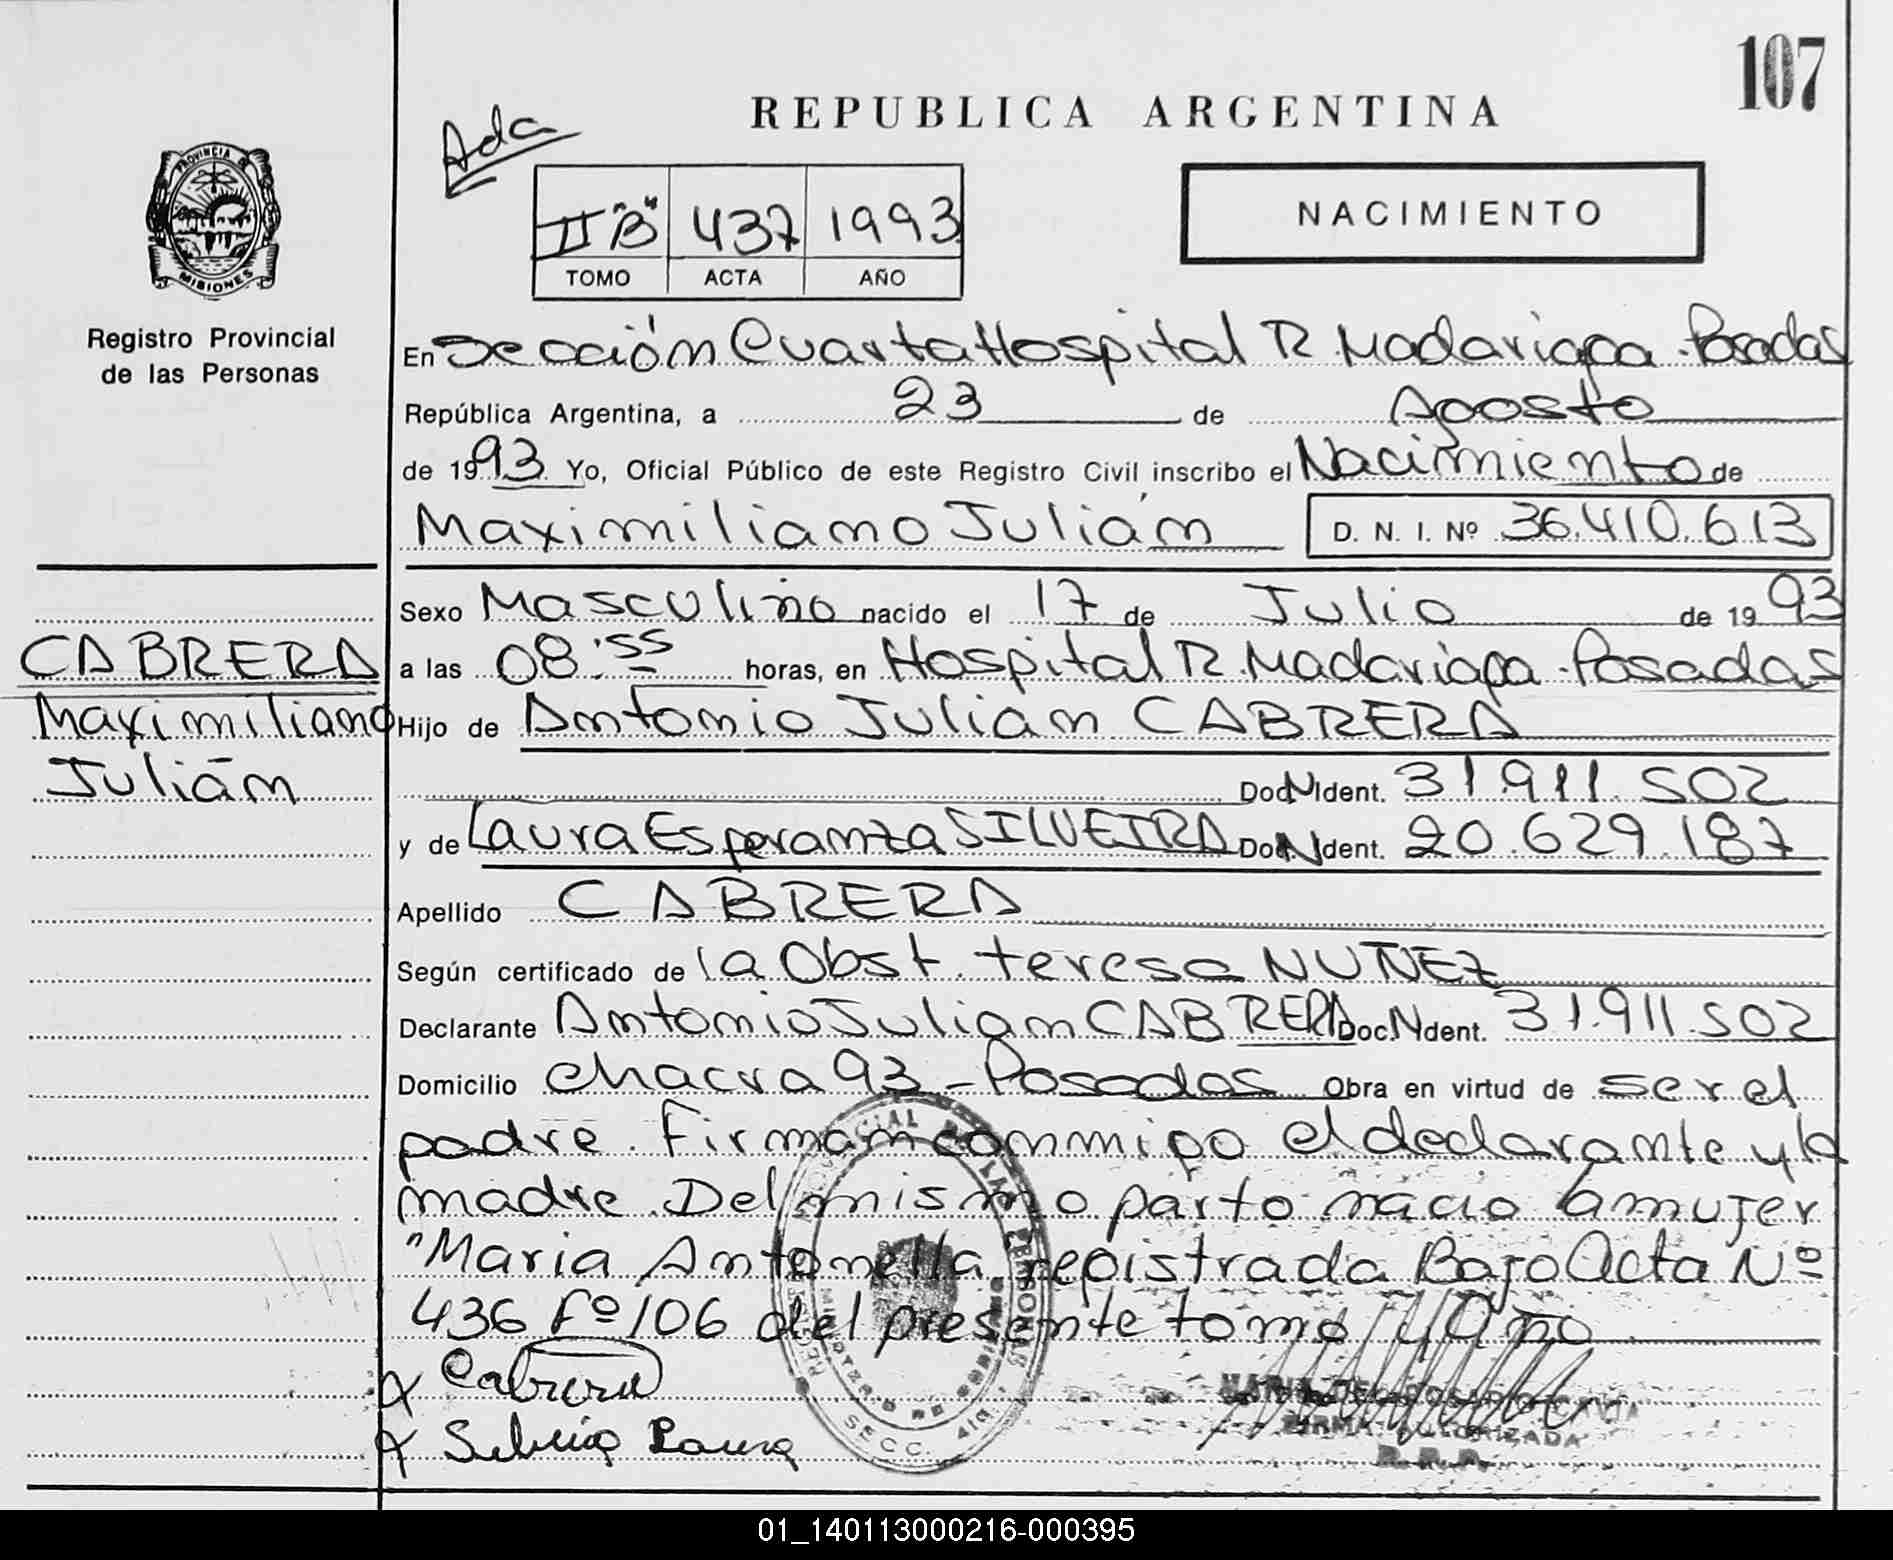 107
REPUBLICA ARGENTINA
Ada
II "B" 437 1993
TOMO ACTA AÑO
NACIMIENTO
PROVINCIA DE
MISIONES
Registro Provincial
de las Personas
En Sección Cuarta Hospital R. Madariaga - Posadas
República Argentina, a 23 de Agosto
de 1993 Yo, Oficial Público de este Registro Civil inscribo el Nacimiento de
Maximiliano Julián D. N. I. Nº 36.410.613
Sexo Masculino nacido el 17 de Julio de 1993
a las 08:55 horas, en Hospital R. Madariaga - Posadas
CABRERA
Maximiliano
Julián
Hijo de Antonio Julian CABRERA
Doc N Ident. 31.911.502
y de Laura Esperanza SILVEIRA Doc. N Ident. 20.629.187
Apellido CABRERA
Según certificado de la Obst. teresa NUÑEZ
Declarante Antonio Julian CABRERA Doc. N Ident. 31.911.502
Domicilio Chacra 93 - Posadas Obra en virtud de ser el
padre. Firman conmigo el declarante y la
madre. Del mismo parto nacio la mujer
"Maria Antonella registrada Bajo Acta Nº
436 Fº 106 del presente tomo y Año
x Cabrera
x Laura
REGISTRO PROVINCIAL DE LAS PERSONAS
SECC. 4ta.
MARIA DEL ROSARIO
FIRMA AUTORIZADA
R. P. P.
01_140113000216-000395